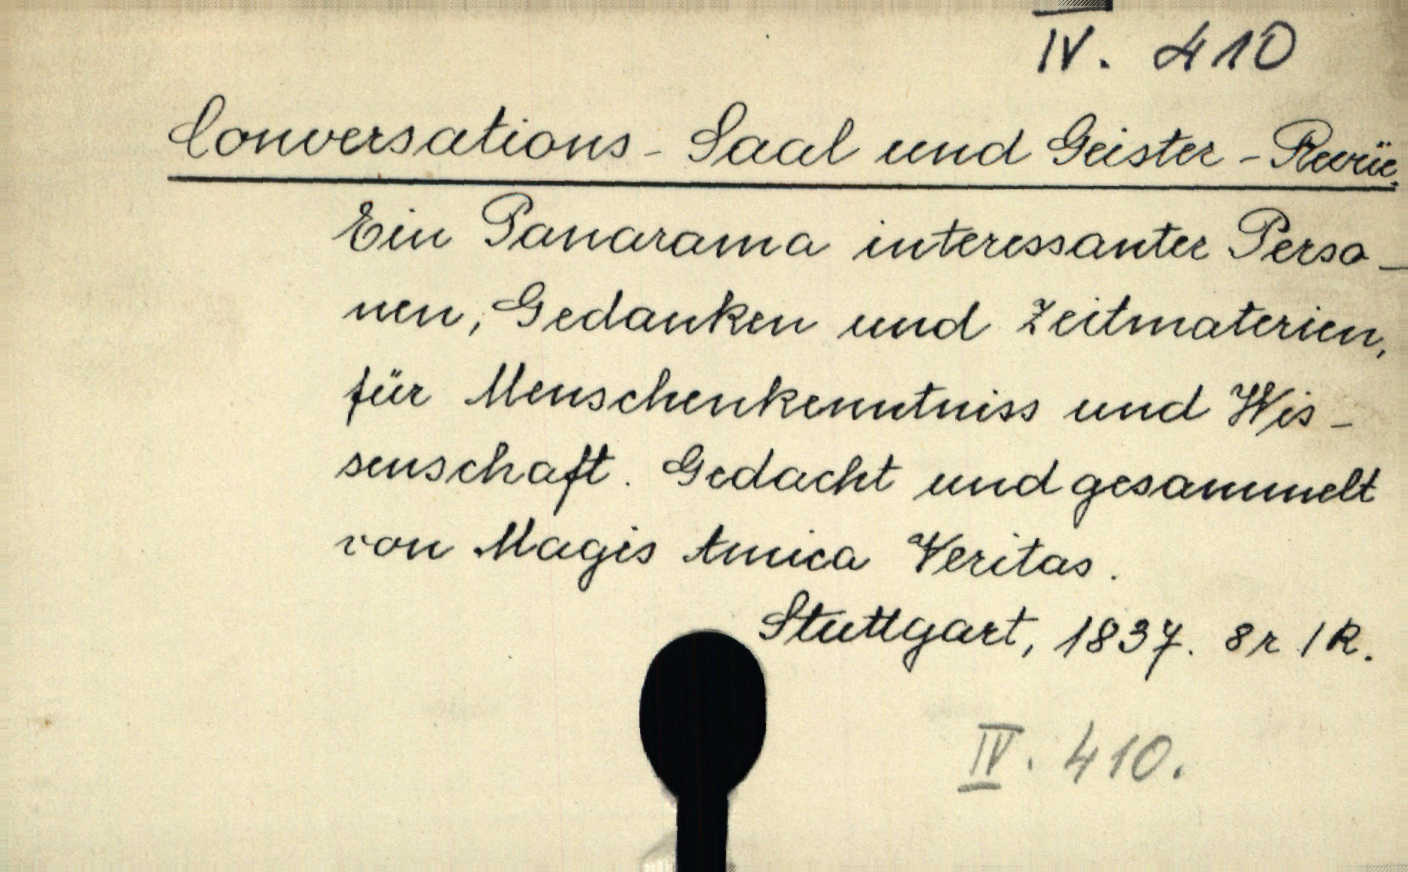 IV. 410
Conversations - Saal und Geister - Revüe.
Ein Panarama interessanter Perso -
nen, Gedanken und Zeitmaterien,
für Menschenkenntniss und Wis -
senschaft. Gedacht und gesammelt
von Magis Amica Veritas.
Stuttgart, 1837. 8r 1R.
IV. 410.